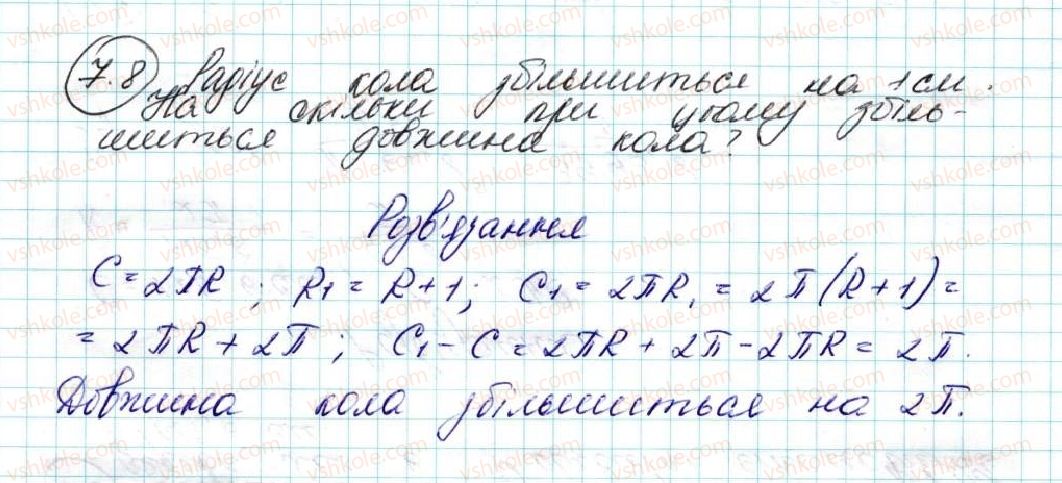 7.8 Радіус кола збільшиться на 1 см.
На скільки при цьому збіль-
шиться довжина кола?
Розв'язання
C = 2ПR ; R1 = R + 1 ; C1 = 2ПR1 = 2П(R + 1) =
= 2ПR + 2П ; C1 - C = 2ПR + 2П - 2ПR = 2П.
Довжина кола збільшиться на 2П.